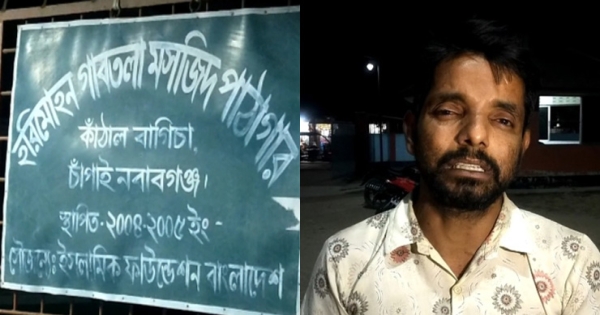 হরিমোহন গাবতলা মসজিদ পাঠাগার
কাঁঠাল বাগিচা,
চাঁপাই নবাবগঞ্জ।
স্থাপিত-২০০৪-২০০৫ ইং-
সৌজন্যেঃ ইসলামিক ফাউন্ডেশন বাংলাদেশ